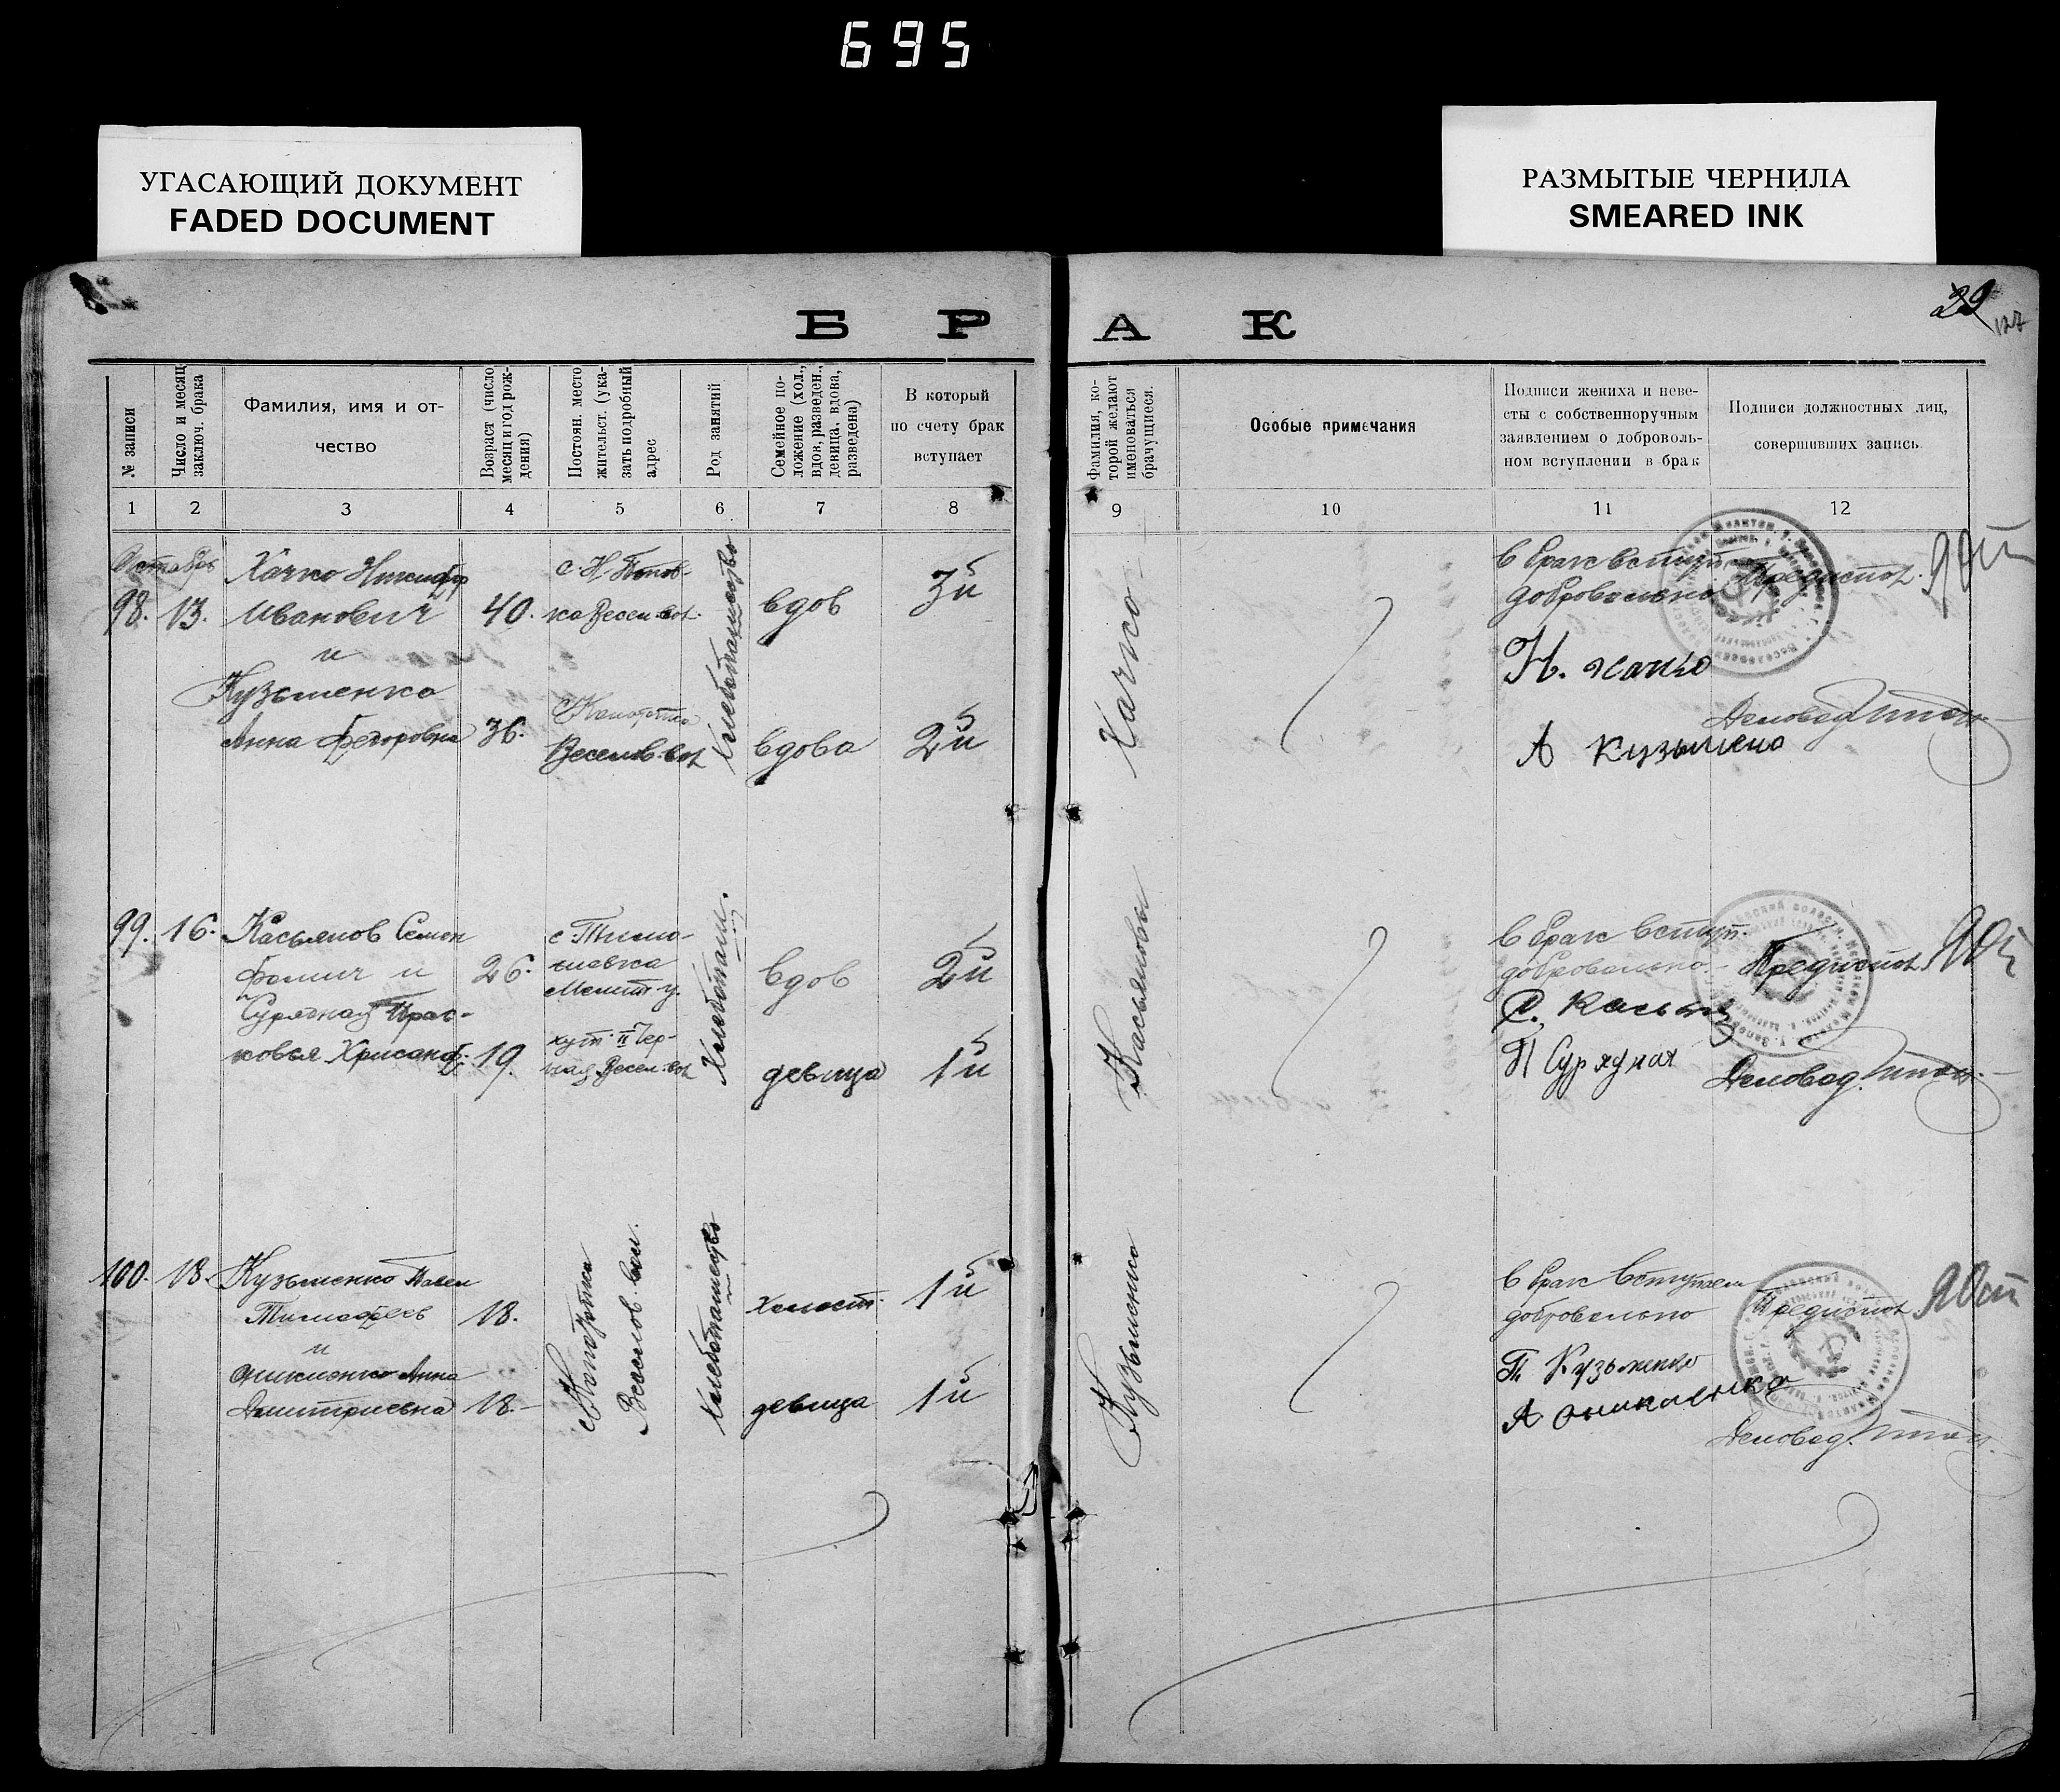 695
УГАСАЮЩИЙ ДОКУМЕНТ
FADED DOCUMENT
РАЗМЫТЫЕ ЧЕРНИЛА
SMEARED INK
29
127
Б Р А К
№ записи
Число и месяц
заключ. брака
Фамилия, имя и от-
чество
Возраст (число
месяц и год рож-
дения)
Постоян. место
жительст. (ука-
зать подробный
адрес
Род занятий
Семейное по-
ложение (хол.,
вдов, разведен.,
девица. вдова,
разведена)
В который
по счету брак
вступает
Фамилия, ко-
торой желают
именоваться
брачущиеся.
Особые примечания
Подписи жениха и неве-
сты с собственноручным
заявлением о доброволь-
ном вступлении в брак
Подписи должностных лиц,
совершивших запись.
1 2 3 4 5 6 7 8 9 10 11 12
Октябрь
98. 13.
Хачко Никифор
Иванович
и
Кузьменко
Анна Федоровна
40.
36.
с. Н-Попов-
ка Весел. вол.
Веселов. вол
Хлебопашество
вдов
вдова
3й
2й
Хачко
в брак вступ.
добровольно
Н. хачко
А Кузьмено
Предиспол.
Деловод.
99. 16.
Касьянов Семен
Фомич и
Сурядная Прас-
ковья Хрисанф.
26.
19.
с Тимо-
шевка
Мелит. у.
хут. II Чер-
Весел. вол
Хлебопаш.
вдов
девица
2й
1й
Касьяновы
в брак вступ.
добровольно
С. Касьян
П Сурядная
Предиспол.
Деловод.
100. 18.
Кузьменко Павел
Тимофеев
и
Оникиенко Анна
Дмитриевна
18.
18.
Веселов. вол.
Хлебопашество
холост.
девица
1й
1й
Кузьменко
в брак вступаем
добровольно
П. Кузьменко
Предиспол.
Деловод.